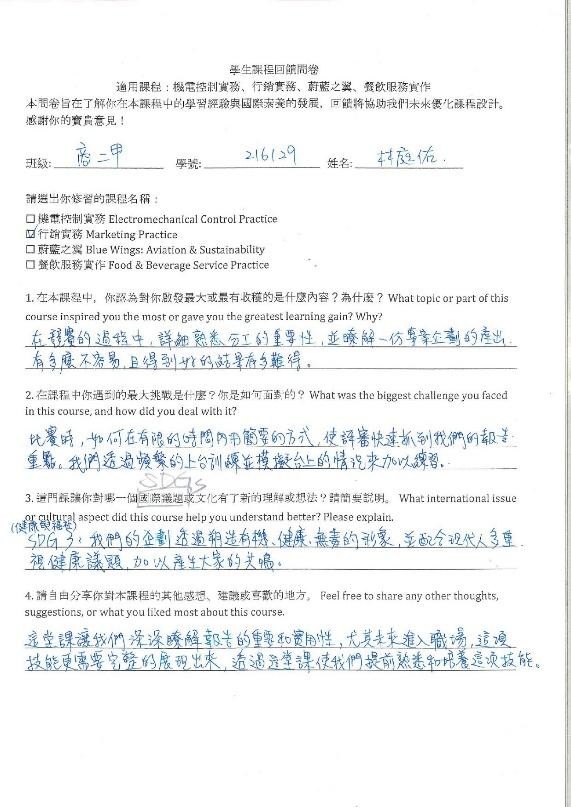 學生課程回饋問卷
適用課程：機電控制實務、行銷實務、蔚藍之翼、餐飲服務實作
本問卷旨在了解你在本課程中的學習經驗與國際素養的發展，回饋將協助我們未來優化課程設計。
感謝你的寶貴意見！
班級: 商二甲 學號: 216129 姓名: 林庭佑
請選出你修習的課程名稱：
☐ 機電控制實務 Electromechanical Control Practice
☑ 行銷實務 Marketing Practice
☐ 蔚藍之翼 Blue Wings: Aviation & Sustainability
☐ 餐飲服務實作 Food & Beverage Service Practice
1. 在本課程中，你認為對你啟發最大或最有收穫的是什麼內容？為什麼？ What topic or part of this
course inspired you the most or gave you the greatest learning gain? Why?
在競賽的過程中，詳細熟悉分工的重要性，並瞭解一份專案企劃的產出
有多麼不容易，且得到好的結果有多難得。
2. 在課程中你遇到的最大挑戰是什麼？你是如何面對的？ What was the biggest challenge you faced
in this course, and how did you deal with it?
比賽時，如何在有限的時間內用簡要的方式，使評審快速抓到我們的報告
重點。我們透過頻繁的上台訓練並模擬台上的情況來加以練習。
SDGs
3. 這門課讓你對哪一個國際議題或文化有了新的理解或想法？請簡要說明。 What international issue
or cultural aspect did this course help you understand better? Please explain.
(健康與福祉)
SDG 3：我們的企劃透過塑造有機、健康、無毒的形象，並配合現代人多重
視健康議題，加以產生大家的共鳴。
4. 請自由分享你對本課程的其他感想、建議或喜歡的地方。 Feel free to share any other thoughts,
suggestions, or what you liked most about this course.
這堂課讓我們深深瞭解報告的重要和實用性，尤其未來進入職場，這項
技能更需要完整的展現出來，透過這堂課使我們提前熟悉和培養這項技能。